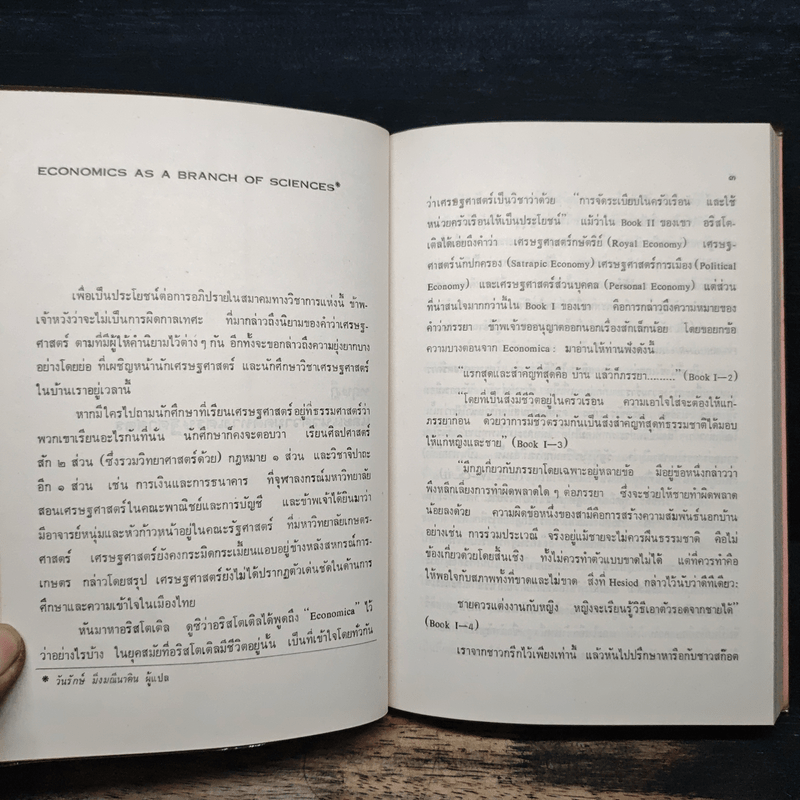 ECONOMICS AS A BRANCH OF SCIENCES*
เพื่อเป็นประโยชน์ต่อการอภิปรายในสมาคมทางวิชาการแห่งนี้ ข้าพ-
เจ้าหวังว่าจะไม่เป็นการผิดกาลเทศะ ที่มากล่าวถึงนิยามของคำว่าเศรษฐ-
ศาสตร์ ตามที่มีผู้ให้คำนิยามไว้ต่าง ๆ กัน อีกทั้งจะขอกล่าวถึงความยุ่งยากบาง
อย่างโดยย่อ ที่เผชิญหน้านักเศรษฐศาสตร์ และนักศึกษาวิชาเศรษฐศาสตร์
ในบ้านเราอยู่เวลานี้
หากมีใครไปถามนักศึกษาที่เรียนเศรษฐศาสตร์อยู่ที่ธรรมศาสตร์ว่า
พวกเขาเรียนอะไรกันที่นั่น นักศึกษาก็คงจะตอบว่า เรียนศิลปศาสตร์
สัก ๒ ส่วน (ซึ่งรวมวิทยาศาสตร์ด้วย) กฎหมาย ๑ ส่วน และวิชาจิปาถะ
อีก ๑ ส่วน เช่น การเงินและการธนาคาร ที่จุฬาลงกรณ์มหาวิทยาลัย
สอนเศรษฐศาสตร์ในคณะพาณิชย์และการบัญชี และข้าพเจ้าได้ยินมาว่า
มีอาจารย์หนุ่มและหัวก้าวหน้าอยู่ในคณะรัฐศาสตร์ ที่มหาวิทยาลัยเกษตร-
ศาสตร์ เศรษฐศาสตร์ยังคงกระมิดกระเมี้ยนแอบอยู่ข้างหลังสหกรณ์การ-
เกษตร กล่าวโดยสรุป เศรษฐศาสตร์ยังไม่ได้ปรากฏตัวเด่นชัดในด้านการ
ศึกษาและความเข้าใจในเมืองไทย
หันมาหาอริสโตเติล ดูซิว่าอริสโตเติลได้พูดถึง "Economica" ไว้
ว่าอย่างไรบ้าง ในยุคสมัยที่อริสโตเติลมีชีวิตอยู่นั้น เป็นที่เข้าใจโดยทั่วกัน
* วันรักษ์ มิ่งมณีนาคิน ผู้แปล
๓
ว่าเศรษฐศาสตร์เป็นวิชาว่าด้วย "การจัดระเบียบในครัวเรือน และใช้
หน่วยครัวเรือนให้เป็นประโยชน์" แม้ว่าใน Book II ของเขา อริสโต-
เติลได้เอ่ยถึงคำว่า เศรษฐศาสตร์กษัตริย์ (Royal Economy) เศรษฐ-
ศาสตร์นักปกครอง (Satrapic Economy) เศรษฐศาสตร์การเมือง (Political
Economy) และเศรษฐศาสตร์ส่วนบุคคล (Personal Economy) แต่ส่วน
ที่น่าสนใจมากกว่านี้ใน Book I ของเขา คือการกล่าวถึงความหมายของ
คำว่าภรรยา ข้าพเจ้าขออนุญาตออกนอกเรื่องสักเล็กน้อย โดยขอยกข้อ
ความบางตอนจาก Economica: มาอ่านให้ท่านฟังดังนี้
"แรกสุดและสำคัญที่สุดคือ บ้าน แล้วก็ภรรยา........." (Book I—2)
"โดยที่เป็นสิ่งมีชีวิตอยู่ในครัวเรือน ความเอาใจใส่จะต้องให้แก่-
ภรรยาก่อน ด้วยว่าการมีชีวิตร่วมกันเป็นสิ่งสำคัญที่สุดที่ธรรมชาติได้มอบ
ให้แก่หญิงและชาย" (Book I—3)
"มีกฎเกี่ยวกับภรรยาโดยเฉพาะอยู่หลายข้อ มีอยู่ข้อหนึ่งกล่าวว่า
พึงหลีกเลี่ยงการทำผิดพลาดใด ๆ ต่อภรรยา ซึ่งจะช่วยให้ชายทำผิดพลาด
น้อยลงด้วย ความผิดข้อหนึ่งของสามีคือการสร้างความสัมพันธ์นอกบ้าน
อย่างเช่น การร่วมประเวณี จริงอยู่แม้ชายจะไม่ควรฝืนธรรมชาติ คือไม่
ข้องเกี่ยวด้วยโดยสิ้นเชิง ทั้งไม่ควรทำตัวแบบขาดไม่ได้ แต่ที่ควรทำคือ
ให้พอใจกับสภาพทั้งที่ขาดและไม่ขาด สิ่งที่ Hesiod กล่าวไว้นับว่าดีทีเดียว:
ชายควรแต่งงานกับหญิง หญิงจะเรียนรู้วิธีเอาตัวรอดจากชายได้"
(Book I—4)
เราจากชาวกรีกไว้เพียงเท่านี้ แล้วหันไปปรึกษาหารือกับชาวสก๊อต